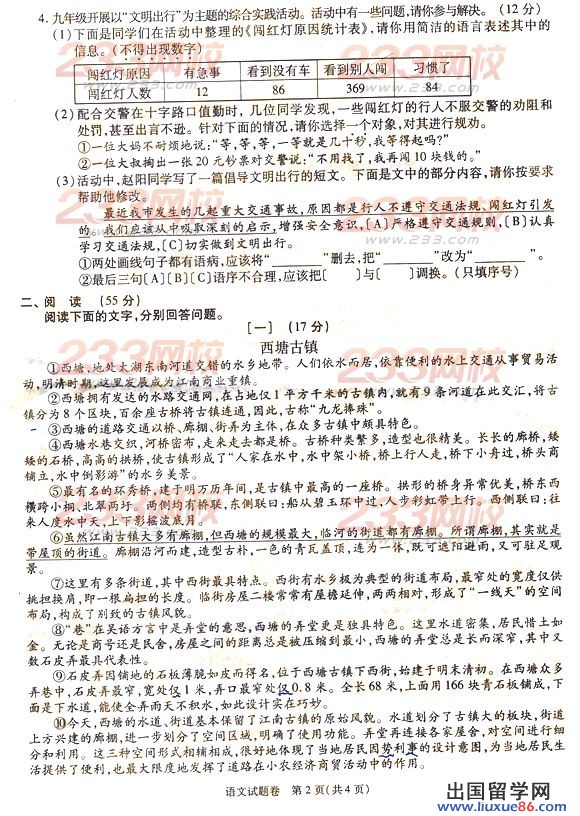 4. 九年级开展以“文明出行”为主题的综合实践活动。活动中有一些问题,请你参与解决。(12 分)
(1)下面是同学们在活动中整理的《闯红灯原因统计表》,请你用简洁的语言表述其中的
信息。(不得出现数字)
闯红灯原因 有急事 看到没有车 看到别人闯 习惯了
闯红灯人数 12 86 369 84
(2)配合交警在十字路口值勤时,几位同学发现,一些闯红灯的行人不服交警的劝阻和
处罚,甚至出言不逊。针对下面的情况,请你选择一个对象,对其进行规劝。
①一位大妈不耐烦地说:“等,等,等,一等就是几十秒,我等得起吗?”
②一位大叔掏出一张 20 元钞票对交警说:“不用找了,我再闯 10 块钱的。”
(3)活动中,赵阳同学写了一篇倡导文明出行的短文。下面是文中的部分内容,请你按要求
帮助他修改。
最近我市发生的几起重大交通事故,原因都是行人不遵守交通法规、闯红灯引发
的。我们应该从中吸取深刻的启示,增强安全意识,〔A〕严格遵守交通规则,〔B〕认真
学习交通法规,〔C〕切实做到文明出行。
①两处画线句子都有语病,应该将“________”删去,把“________”改为“________”。
②最后三句〔A〕〔B〕〔C〕语序不合理,应该把〔 〕与〔 〕调换。(只填序号)
二、阅 读 (55 分)
阅读下面的文字,分别回答问题。
[一] (17 分)
西塘古镇
①西塘,地处太湖东南河道交错的水乡地带。人们依水而居,依靠便利的水上交通从事贸易活
动,明清时期,这里发展成为江南商业重镇。
②西塘拥有发达的水路交通网,在占地仅 1 平方千米的古镇内,就有 9 条河道在此交汇,将古
镇分为 8 个区块,百余座古桥将古镇连通,因此,古称“九龙捧珠”。
③西塘的道路交通以桥、廊棚、街弄为主体,在众多古镇中颇具特色。
④西塘水巷交织,河桥密布,走来走去都是桥。古桥种类繁多,造型也很精美。长长的廊桥,矮
矮的石桥,高高的拱桥,使古镇形成了“人家在水中,水中架小桥,桥上行人走,桥下小舟过,桥头商
铺立,水中倒影游”的水乡美景。
⑤最有名的环秀桥,建于明万历年间,是古镇中最高的一座桥。拱形的桥身异常优美,桥东西
横跨小桐、北翠两圩。两侧均有桥联,东侧联曰:船从碧玉环中过,人步彩虹带上行。西侧联曰:往
来人度水中天,上下影摇波底月。
⑥虽然江南古镇大多有廊棚,但西塘的规模最大,临河的街道都有廊棚。所谓廊棚,其实就是
带屋顶的街道。廊棚沿河而建,造型古朴,一色的青瓦盖顶,连为一体,既可遮阳避雨,又可驻足观
景。
⑦这里有多条街道,其中西街最具特点。西街有水乡极为典型的街道布局,最窄处的宽度仅供
挑担换肩,即一根扁担的长度。临街房屋二楼常常有屋檐延伸,两两相对,形成了“一线天”的空间
布局,构成了别致的古镇风貌。
⑧“巷”在吴语方言中是弄堂的意思,西塘的弄堂更是独具特色。这里水道密集,居民惜土如
金。无论是商号还是民舍,房屋之间的距离总是被压缩到最小,西塘的弄堂总是长而深窄,其中又
数石皮弄最具代表性。
⑨石皮弄因铺地的石板薄脱如皮而得名,位于西塘古镇下西街,始建于明末清初。在西塘众多
弄巷中,石皮弄最窄,宽处仅 1 米,弄口最窄处仅 0.8 米。全长 68 米,上面用 166 块青石板铺成,下
面是下水道,能使全弄雨天不积水,如此设计实在巧妙。
⑩今天,西塘的水道、街道基本保留了江南古镇的原始风貌。水道划分了古镇大的板块,街道
上方兴建的廊棚,进一步划分了空间区域,明确了使用功能。弄堂再连接各家屋舍,对空间进行细
分和利用。这三种空间形式相辅相成,很好地体现了当地居民因势利事的设计意图,为当地居民生
活提供了便利,也最大限度地发挥了道路在小农经济商贸活动中的作用。
语文试题卷 第 2 页(共 4 页)
233网校
www.233.com
出国留学网
www.liuxue86.com